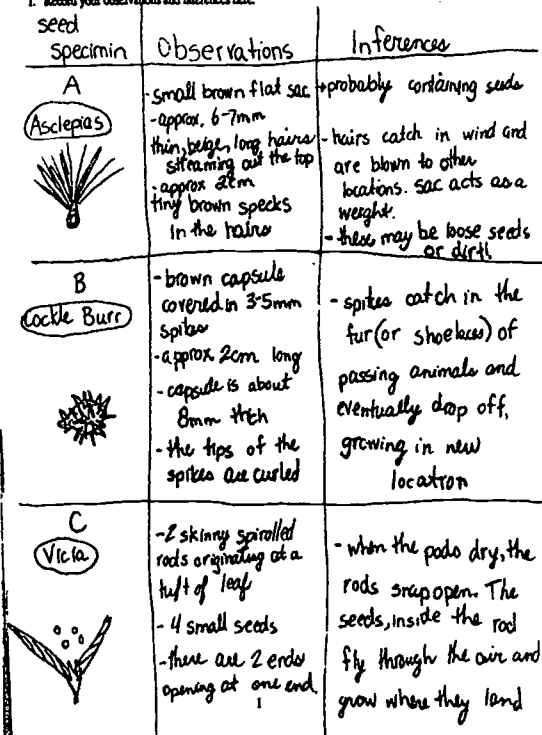 1. Record your observations and inferences here.
seed
specimin
Observations
Inferences
A
Asclepias
- small brown flat sac
- approx. 6-7mm
thin, beige, long hairs
streaming out the top
- approx 2cm
tiny brown specks
in the hairs
→ probably containing seeds
- hairs catch in wind and
are blown to other
locations. sac acts as a
weight.
- these may be loose seeds
or dirt!
B
Cockle Burr
- brown capsule
covered in 3-5mm
spikes
- approx 2cm long
- capsule is about
8mm thich
- the tips of the
spikes are curled
- spikes catch in the
fur (or shoelaces) of
passing animals and
eventually drop off,
growing in new
location
C
Vicia
- 2 skinny spirolled
rods originating at a
tuft of leaf
- 4 small seeds
- there are 2 ends
opening at one end.
1
- when the pods dry, the
rods snap open. The
seeds, inside the rod
fly through the air and
grow where they land